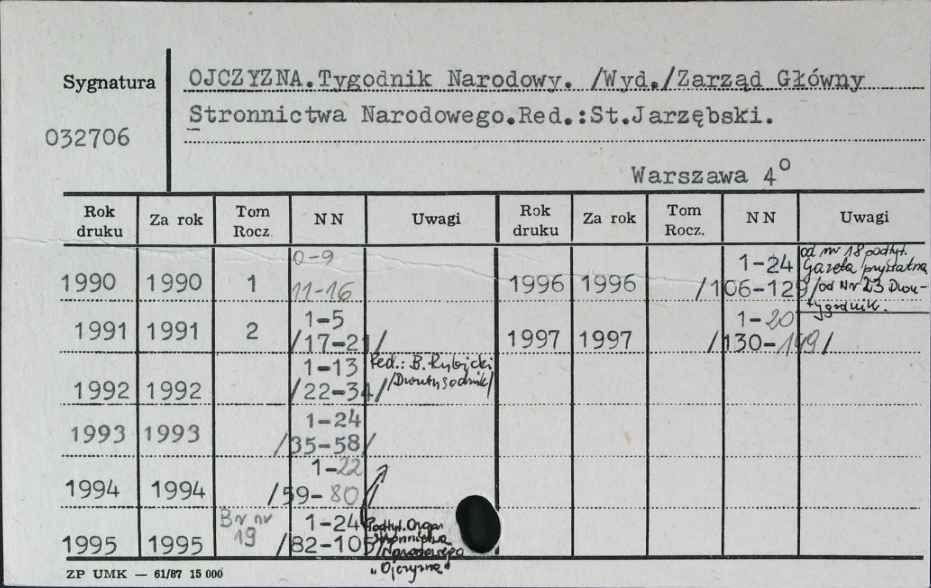 Sygnatura OJCZYZNA.Tygodnik Narodowy. /Wyd./Zarząd Główny
032706 Stronnictwa Narodowego.Red.:St.Jarzębski.
Warszawa 4°
Rok druku Za rok Tom Rocz. NN Uwagi Rok druku Za rok Tom Rocz. NN Uwagi
1990 1990 1 0-9
11-16
1996 1996 1-24
/106-129/
od nr 18 podtyt.
Gazeta prywatna
/od Nr 23 Dwu-
tygodnik.
1991 1991 2 1-5
/17-21/
1997 1997 1-20
/130-149/
1992 1992 1-13
/22-34/
Red.: B. Rybicki
/Dwutygodnik/
1993 1993 1-24
/35-58/
1994 1994 1-22
/59-80
1995 1995 Br nr
19
1-24
/82-105/
Podtyt. Organ
Stronnictwa
Narodowego
"Ojczyzna"
ZP UMK — 61/87 15 000